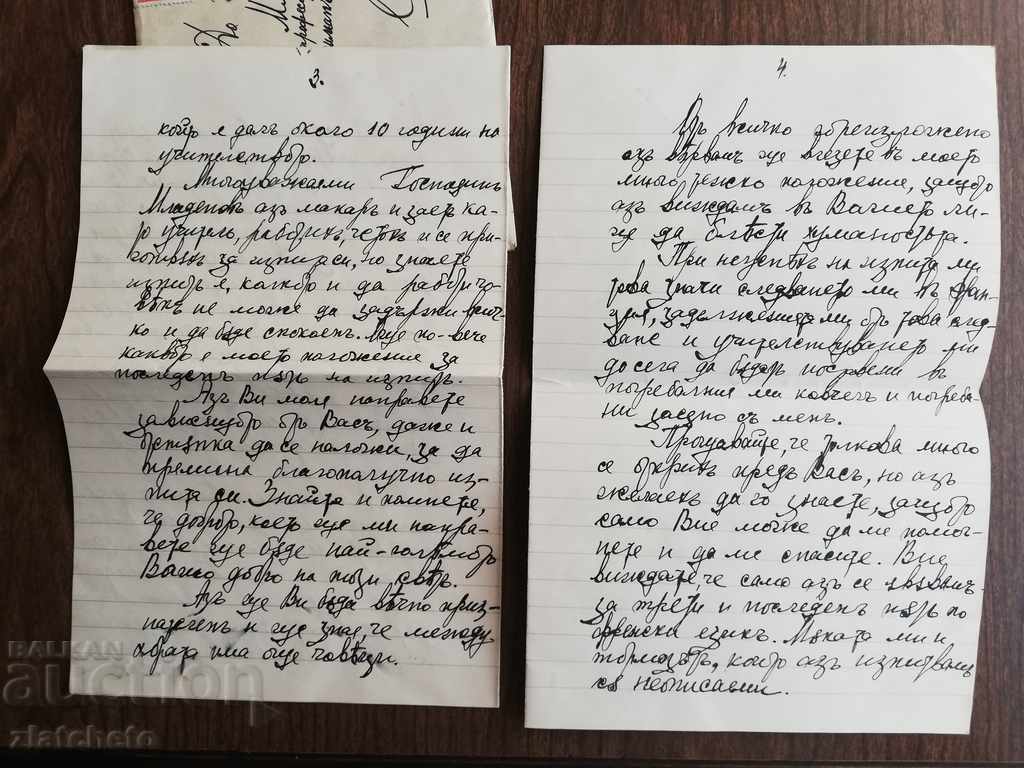 На
3.
който е далъ около 10 години на
учителството.
Многоуважаеми Господинъ
Младеновъ азъ макаръ и заетъ ка-
то учитель, работихъ, четохъ и се при-
готвихъ за изпита си, но знаете
изпитъ е, каквото и да работи чо-
вѣкъ не може да задържи всич-
ко и да бѫде спокоенъ. Още по-вече
какво е моето положение за
последенъ пѫть на изпитъ.
Азъ Ви моля направете
зависящето отъ Васъ, даже и
отстѫпка да се наложи, за да
премина благополучно из-
пита си. Знайте и помнете,
че доброто, което ще ми напра-
вите ще бѫде най-голѣмото
Ваше добро на този свѣтъ.
Азъ ще Ви бѫда вѣчно приз-
нателенъ и ще зная, че между
хората има още човѣци.
4.
Отъ всичко гореизложено
азъ вѣрвамъ ще влезете въ моето
много тежко положение, защото
азъ виждамъ въ Вашето ли-
це да блѣсти хуманностьта.
При неуспѣхъ на изпита ми
това значи следването ми въ
задълженията ми отъ това след-
ване и учителствуването ми
до сега да бѫдатъ поставени въ
погребалния ми ковчегъ и погреба-
ни заедно съ менъ.
Прощавайте, че толкова много
се открихъ предъ Васъ, но азъ
желаехъ да го знаете, защото
само Вие може да ми помог-
нете и да ме спасите. Вие
виждате че само азъ се явявамъ
за трети и последенъ пѫть по
френски езикъ. Мѫката ми и
терзанията, които азъ изживявамъ
сѫ неописаеми.
BALKAN
auction
zlatcheto